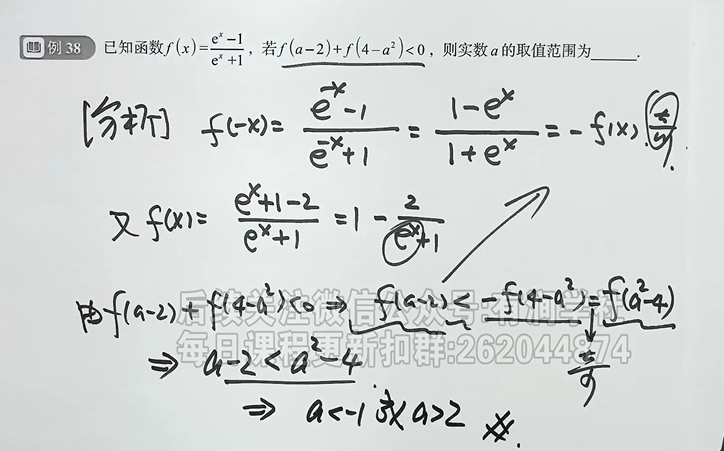 例 38 已知函数 f(x)=(e^x-1)/(e^x+1)，若 f(a-2)+f(4-a²)<0，则实数 a 的取值范围为____.
[分析] f(-x)= (e^-x -1)/(e^-x +1) = (1-e^x)/(1+e^x) = -f(x). 奇
又 f(x)= (e^x+1-2)/(e^x+1) =1- 2/(e^x+1)
由 f(a-2)+f(4-a²)<0 ⇒ f(a-2)<-f(4-a²)=f(a²-4)
后续关注微信公众号:
每日课程更新扣群:262044874
⇒ a-2<a²-4
⇒ a<-1 或 a>2